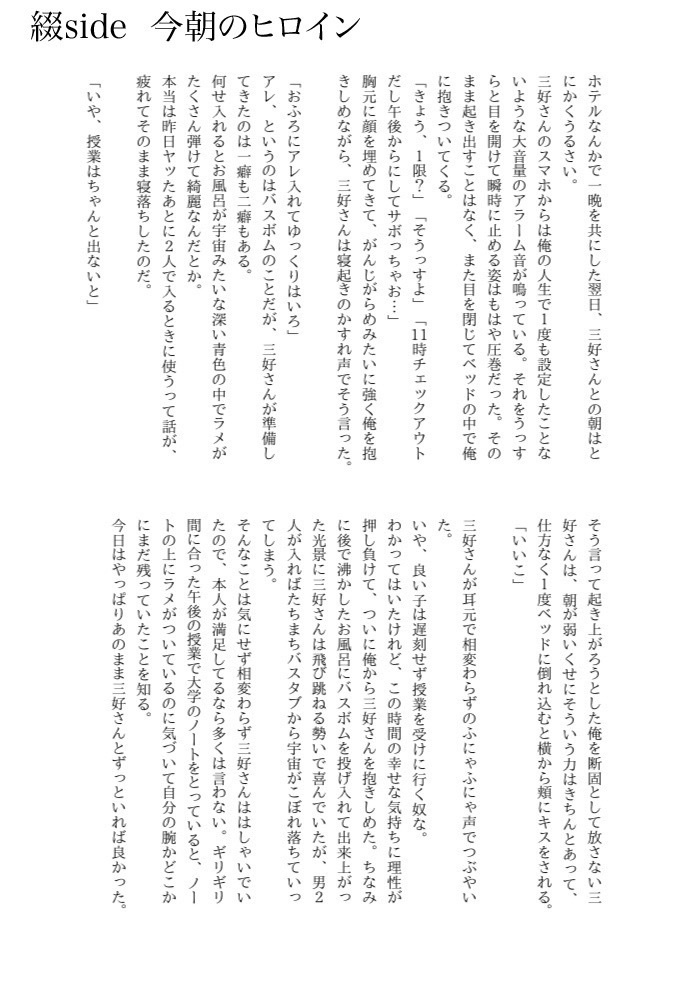 綴side 今朝のヒロイン
ホテルなんかで一晩を共にした翌日、三好さんとの朝はと
にかくうるさい。
三好さんのスマホからは俺の人生で1度も設定したことな
いような大音量のアラーム音が鳴っている。それをうっす
らと目を開けて瞬時に止める姿はもはや圧巻だった。その
まま起き出すことはなく、また目を閉じてベッドの中で俺
に抱きついてくる。
「きょう、1限？」「そうっすよ」「11時チェックアウト
だし午後からにしてサボっちゃお…」
胸元に顔を埋めてきて、がんじがらめみたいに強く俺を抱
きしめながら、三好さんは寝起きのかすれ声でそう言った。
「おふろにアレ入れてゆっくりはいろ」
アレ、というのはバスボムのことだが、三好さんが準備し
てきたのは一癖も二癖もある。
何せ入れるとお風呂が宇宙みたいな深い青色の中でラメが
たくさん弾けて綺麗なんだとか。
本当は昨日ヤッたあとに2人で入るときに使うって話が、
疲れてそのまま寝落ちしたのだ。
「いや、授業はちゃんと出ないと」
そう言って起き上がろうとした俺を断固として放さない三
好さんは、朝が弱いくせにそういう力はきちんとあって、
仕方なく1度ベッドに倒れ込むと横から頬にキスをされる。
「いいこ」
三好さんが耳元で相変わらずのふにゃふにゃ声でつぶやい
た。
いや、良い子は遅刻せず授業を受けに行く奴な。
わかってはいたけれど、この時間の幸せな気持ちに理性が
押し負けて、ついに俺から三好さんを抱きしめた。ちなみ
に後で沸かしたお風呂にバスボムを投げ入れて出来上がっ
た光景に三好さんは飛び跳ねる勢いで喜んでいたが、男2
人が入ればたちまちバスタブから宇宙がこぼれ落ちていっ
てしまう。
そんなことは気にせず相変わらず三好さんははしゃいでい
たので、本人が満足してるなら多くは言わない。ギリギリ
間に合った午後の授業で大学のノートをとっていると、ノー
トの上にラメがついているのに気づいて自分の腕かどこか
にまだ残っていたことを知る。
今日はやっぱりあのまま三好さんとずっといれば良かった。